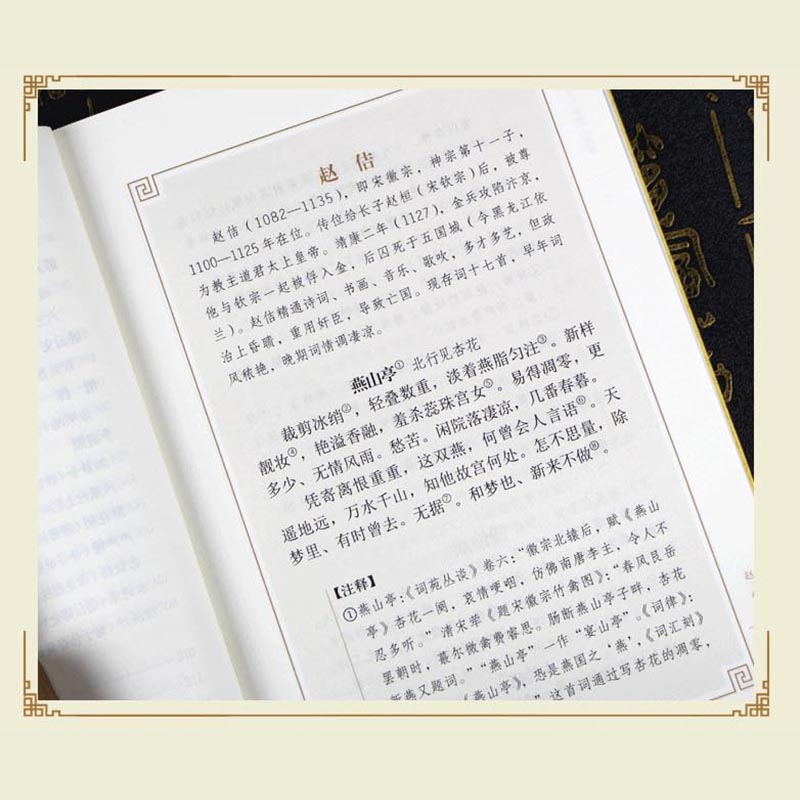 赵佶
赵佶（1082—1135），即宋徽宗，神宗第十一子，
1100—1125年在位。传位给长子赵桓（宋钦宗）后，被尊
为教主道君太上皇帝。靖康二年（1127），金兵攻陷汴京，
他与钦宗一起被俘入金，后囚死于五国城（今黑龙江依
兰）。赵佶精通诗词、书画、音乐、歌吹，多才多艺，但政
治上昏聩，重用奸臣，导致亡国。现存词十七首，早年词
风秾艳，晚期词情调凄凉。
燕山亭① 北行见杏花
裁剪冰绡②，轻叠数重，淡着燕脂匀注③。新样
靓妆④，艳溢香融，羞杀蕊珠宫女⑤。易得凋零，更
多少、无情风雨。愁苦。闲院落凄凉，几番春暮。
凭寄离恨重重，这双燕，何曾会人言语⑥。天
遥地远，万水千山，知他故宫何处。怎不思量，除
梦里、有时曾去。无据⑦。和梦也、新来不做⑧。
【注释】
①燕山亭：《词苑丛谈》卷六：“徽宗北辕后，赋《燕山
亭》杏花一阕，哀情哽咽，仿佛南唐李主，令人不
忍多听。”清宋荦《题宋徽宗竹禽图》：“春风艮岳
罢朝时，蕞尔微禽费睿思。肠断燕山亭子畔，杏花
新燕又题词。”“燕山亭”一作“宴山亭”。《词律》：
《燕山亭》，恐是燕国之‘燕’，《词汇刻
”这首词通过写杏花的凋零，